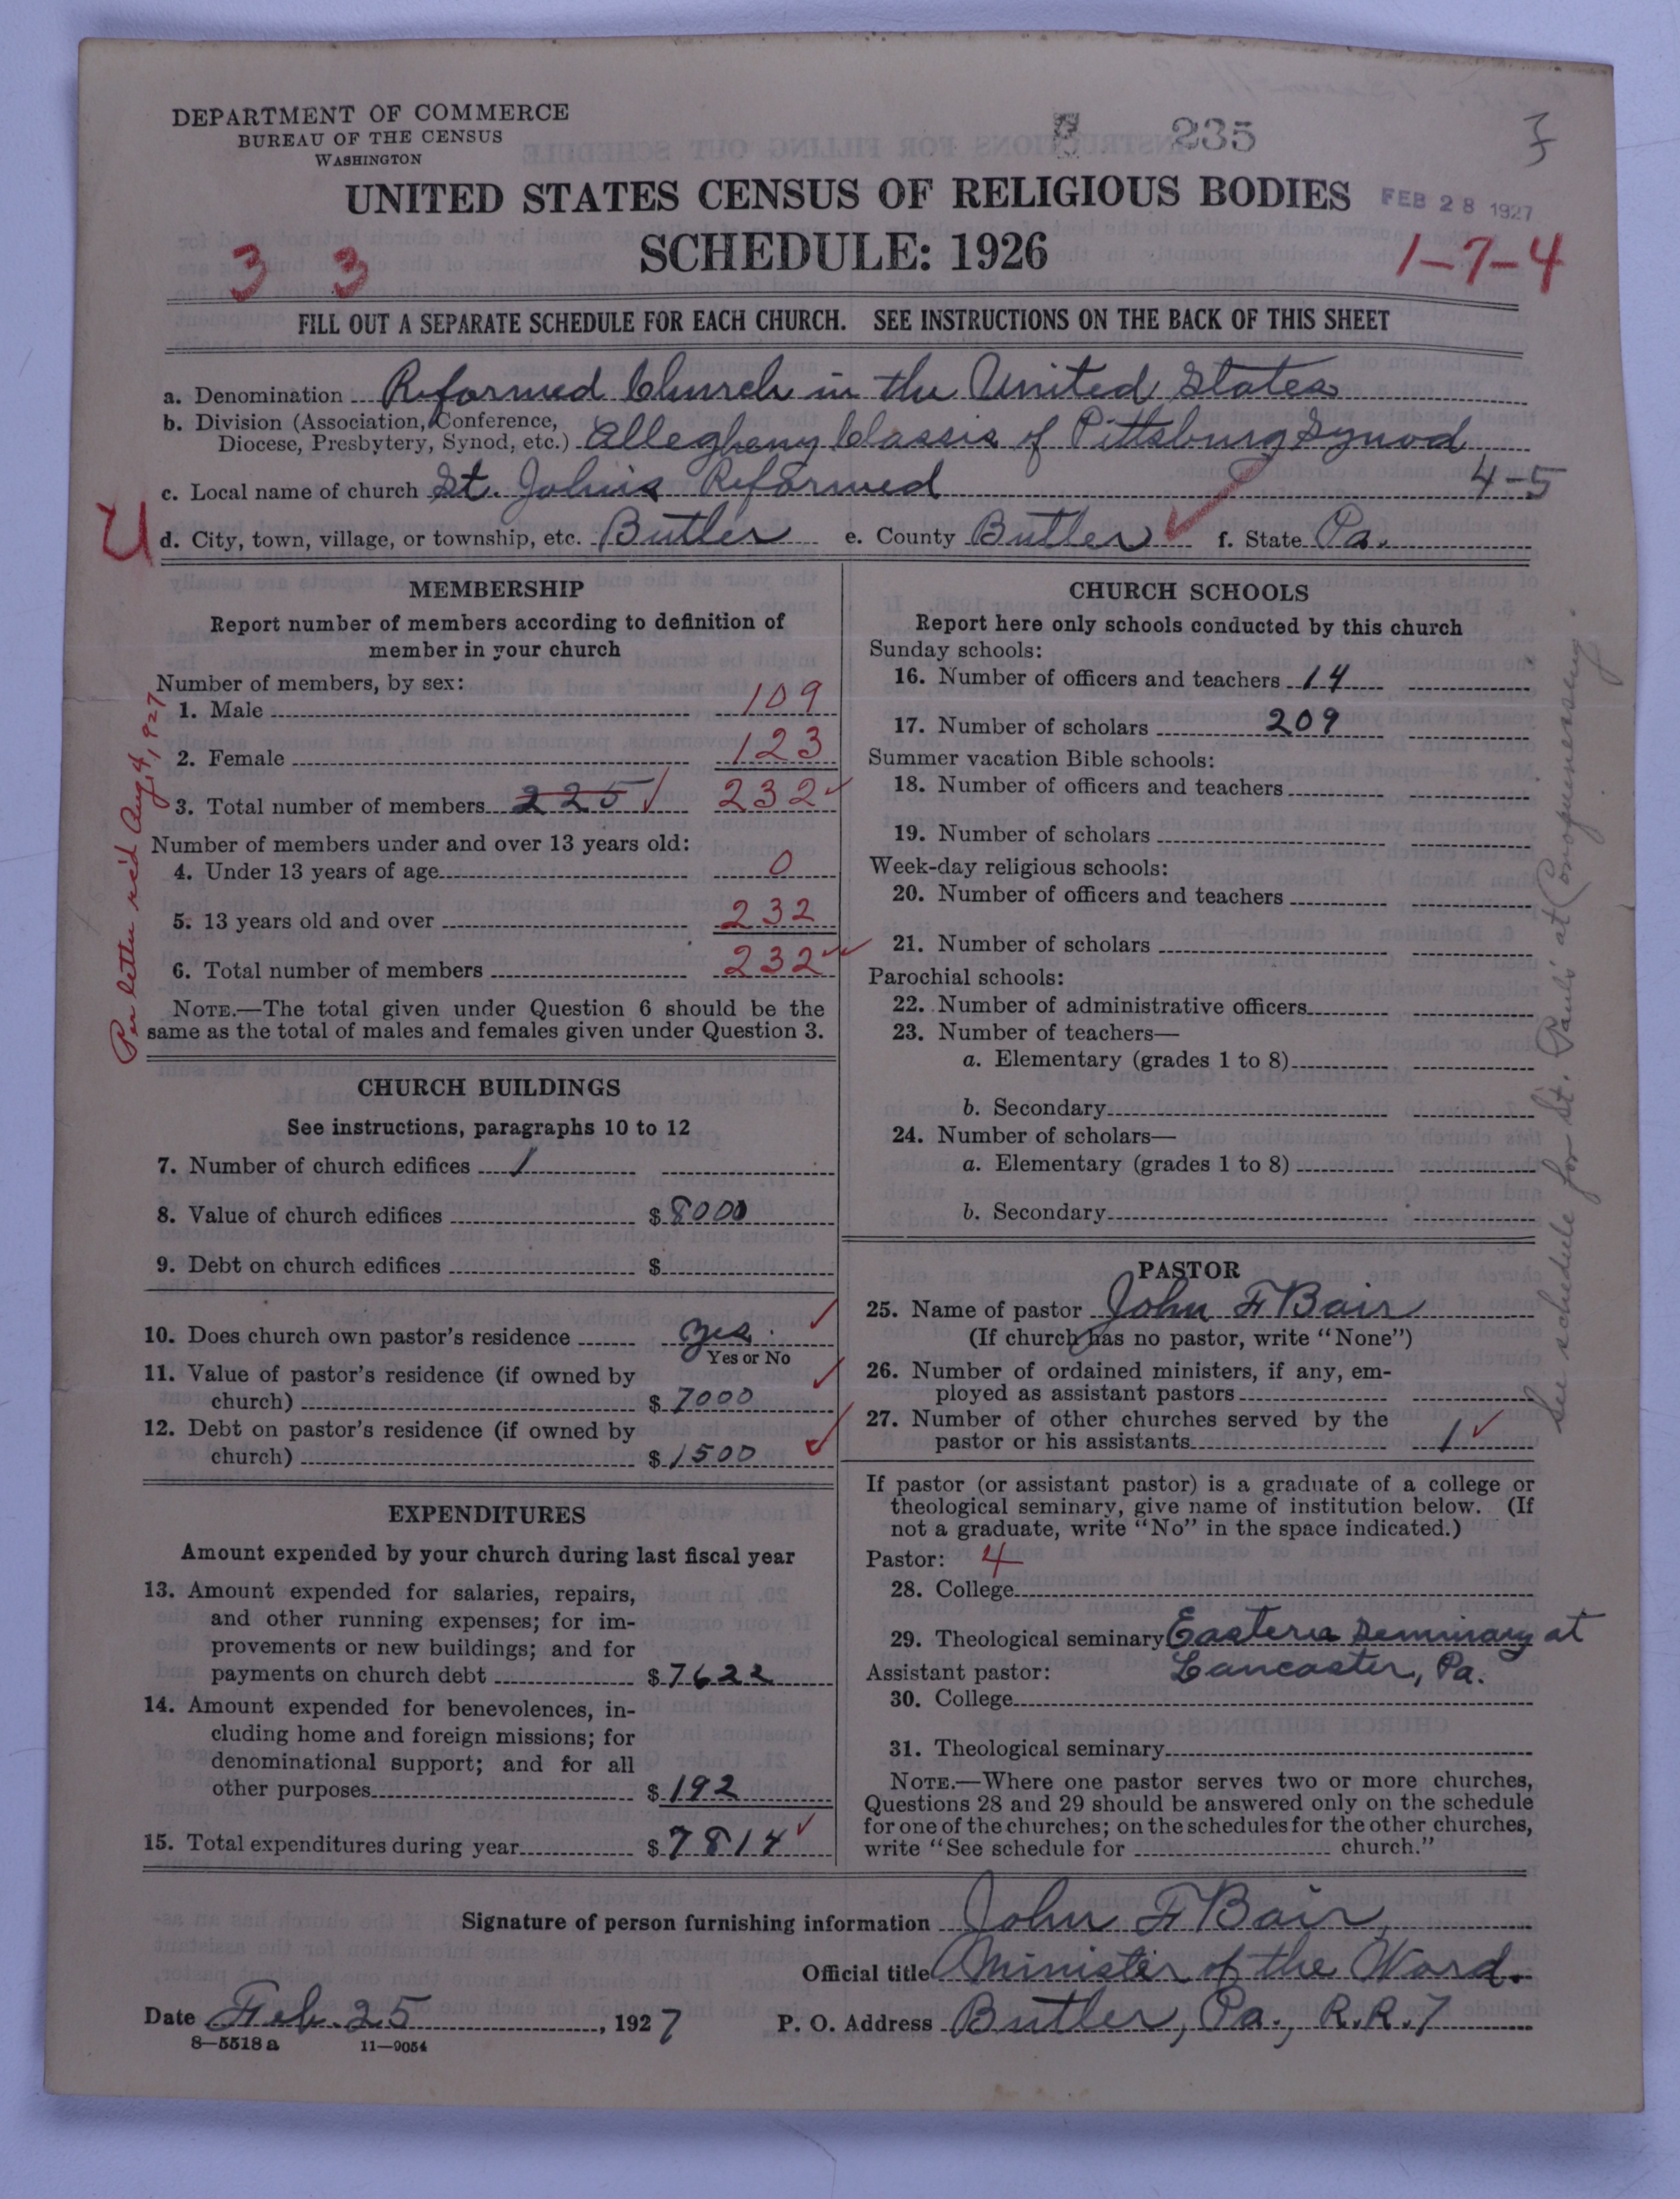 DEPARTMENT OF COMMERCE
BUREAU OF THE CENSUS
WASHINGTON
235
UNITED STATES CENSUS OF RELIGIOUS BODIES
FEB 28 1927
SCHEDULE: 1926
3 3
1-7-4
FILL OUT A SEPARATE SCHEDULE FOR EACH CHURCH. SEE INSTRUCTIONS ON THE BACK OF THIS SHEET
a. Denomination Reformed Church in the United States
b. Division (Association, Conference,
Diocese, Presbytery, Synod, etc.) Allegheny Classis of Pittsburg Synod
c. Local name of church St. John's Reformed 4-5
d. City, town, village, or township, etc. Butler e. County Butler f. State Pa.
MEMBERSHIP
Report number of members according to definition of
member in your church
Number of members, by sex:
1. Male 109
2. Female 123
3. Total number of members 225 232
Number of members under and over 13 years old:
4. Under 13 years of age 0
5. 13 years old and over 232
6. Total number of members 232
NOTE.—The total given under Question 6 should be the
same as the total of males and females given under Question 3.
Per letter rec'd Aug 4, 1927
CHURCH BUILDINGS
See instructions, paragraphs 10 to 12
7. Number of church edifices 1
8. Value of church edifices $ 8000
9. Debt on church edifices $
10. Does church own pastor's residence yes.
Yes or No
11. Value of pastor's residence (if owned by
church) $ 7000
12. Debt on pastor's residence (if owned by
church) $ 1500
EXPENDITURES
Amount expended by your church during last fiscal year
13. Amount expended for salaries, repairs,
and other running expenses; for im-
provements or new buildings; and for
payments on church debt $ 7622
14. Amount expended for benevolences, in-
cluding home and foreign missions; for
denominational support; and for all
other purposes $ 192
15. Total expenditures during year $ 7814
CHURCH SCHOOLS
Report here only schools conducted by this church
Sunday schools:
16. Number of officers and teachers 14
17. Number of scholars 209
Summer vacation Bible schools:
18. Number of officers and teachers
19. Number of scholars
Week-day religious schools:
20. Number of officers and teachers
21. Number of scholars
Parochial schools:
22. Number of administrative officers
23. Number of teachers—
a. Elementary (grades 1 to 8)
b. Secondary
24. Number of scholars—
a. Elementary (grades 1 to 8)
b. Secondary
See schedule for St. Pauls' at Conoquenessing.
PASTOR
25. Name of pastor John F Bair
(If church has no pastor, write "None")
26. Number of ordained ministers, if any, em-
ployed as assistant pastors
27. Number of other churches served by the
pastor or his assistants 1
If pastor (or assistant pastor) is a graduate of a college or
theological seminary, give name of institution below. (If
not a graduate, write "No" in the space indicated.)
Pastor: 4
28. College
29. Theological seminary Eastern Seminary at
Lancaster, Pa.
Assistant pastor:
30. College
31. Theological seminary
NOTE.—Where one pastor serves two or more churches,
Questions 28 and 29 should be answered only on the schedule
for one of the churches; on the schedules for the other churches,
write "See schedule for church."
Signature of person furnishing information John F Bair,
Official title Minister of the Word.
Date Feb. 25, 1927 P. O. Address Butler, Pa., R.R. 7
8—5518a 11—9054